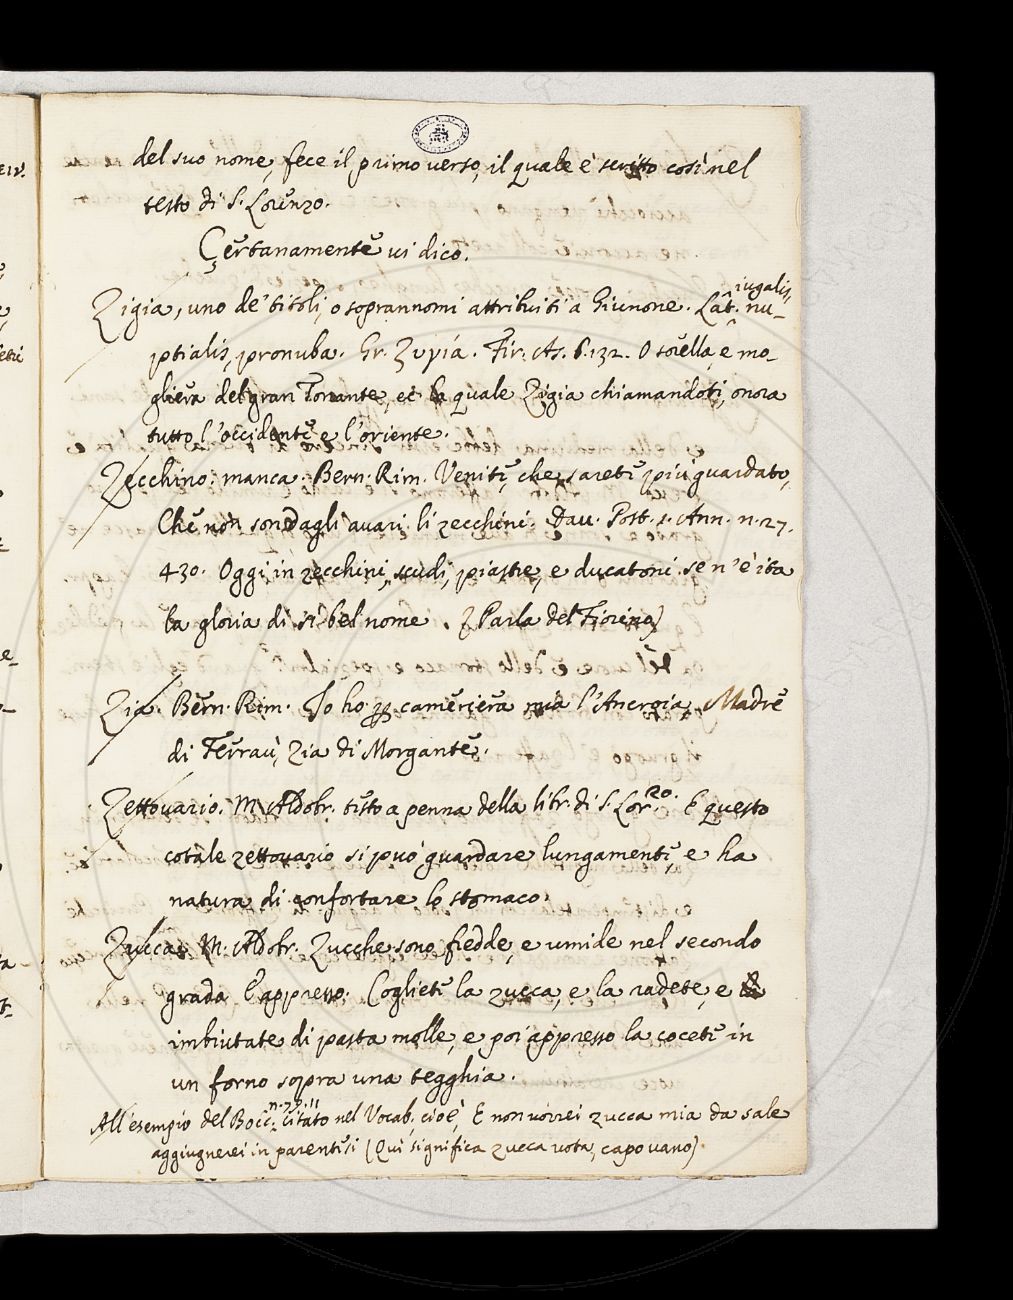 del suo nome, fece il primo verso, il quale è scritto così nel
testo di S. Lorenzo.
Certanamente vi dico.
Zigia, uno de' titoli, o soprannomi attribuiti a Giunone. Lat. iugalis, nu-
ptialis, pronuba. Gr. Ζυγία. Fir. As. 6.132. O sorella, e mo-
gliera del gran Tonante, ec la quale Zigia chiamandoti, onora
tutto l'occidente e l'oriente.
Zecchino: manca. Bern. Rim. Venite, che sarete più guardato,
Che non son dagli avari li zecchini. Dav. Post. 1. Ann. n. 27.
430. Oggi in zecchini, scudi, piastre, e ducatoni se n'è ita
la gloria di sì bel nome. (Parla del Fiorino)
Zia. Bern. Rim. Io ho per cameriera mia l'Ancroia Madre
di Ferraù, Zia di Morgante.
Zettovario. M. Aldobr. testo a penna della libr. di S. Lor.zo. E questo
cotale zettovario si può guardare lungamente e ha
natura di confortare lo stomaco.
Zucca. M. Aldobr. Zucche sono fredde, e umide nel secondo
grado. E appresso. Cogliete la zucca, e la radete, e
imbiutate di pasta molle, e poi appresso la cocete in
un forno sopra una tegghia.
All'esempio del Bocc. n. 79. 11 citato nel Vocab. cioè, E non vorrei zucca mia da sale
aggiugnerei in parentesi (Qui significa zucca vota, capo vano)